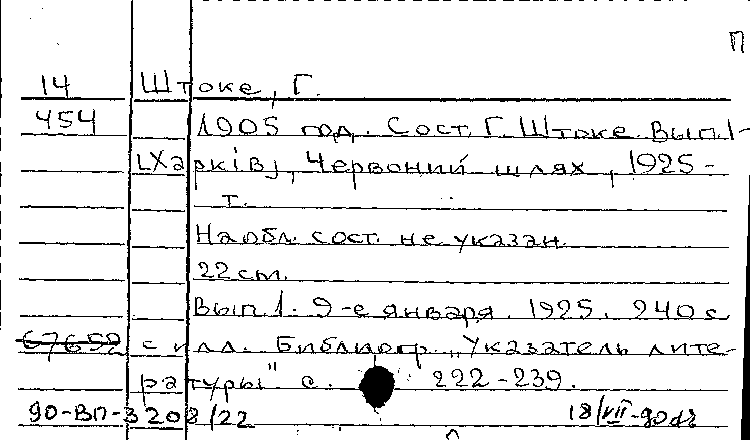 П
14 Штоке, Г.
454 1905 год. Сост. Г. Штоке. Вып. 1-
[Харкiв], Червоний шлях, 1925-
т.
На обл. сост. не указан.
22 см.
Вып. 1. 9-е января. 1925. 240 с
67652 с илл. Библиогр. „Указатель лите-
ратуры" с. 222-239.
90-ВП-3208/22 18/VII-90